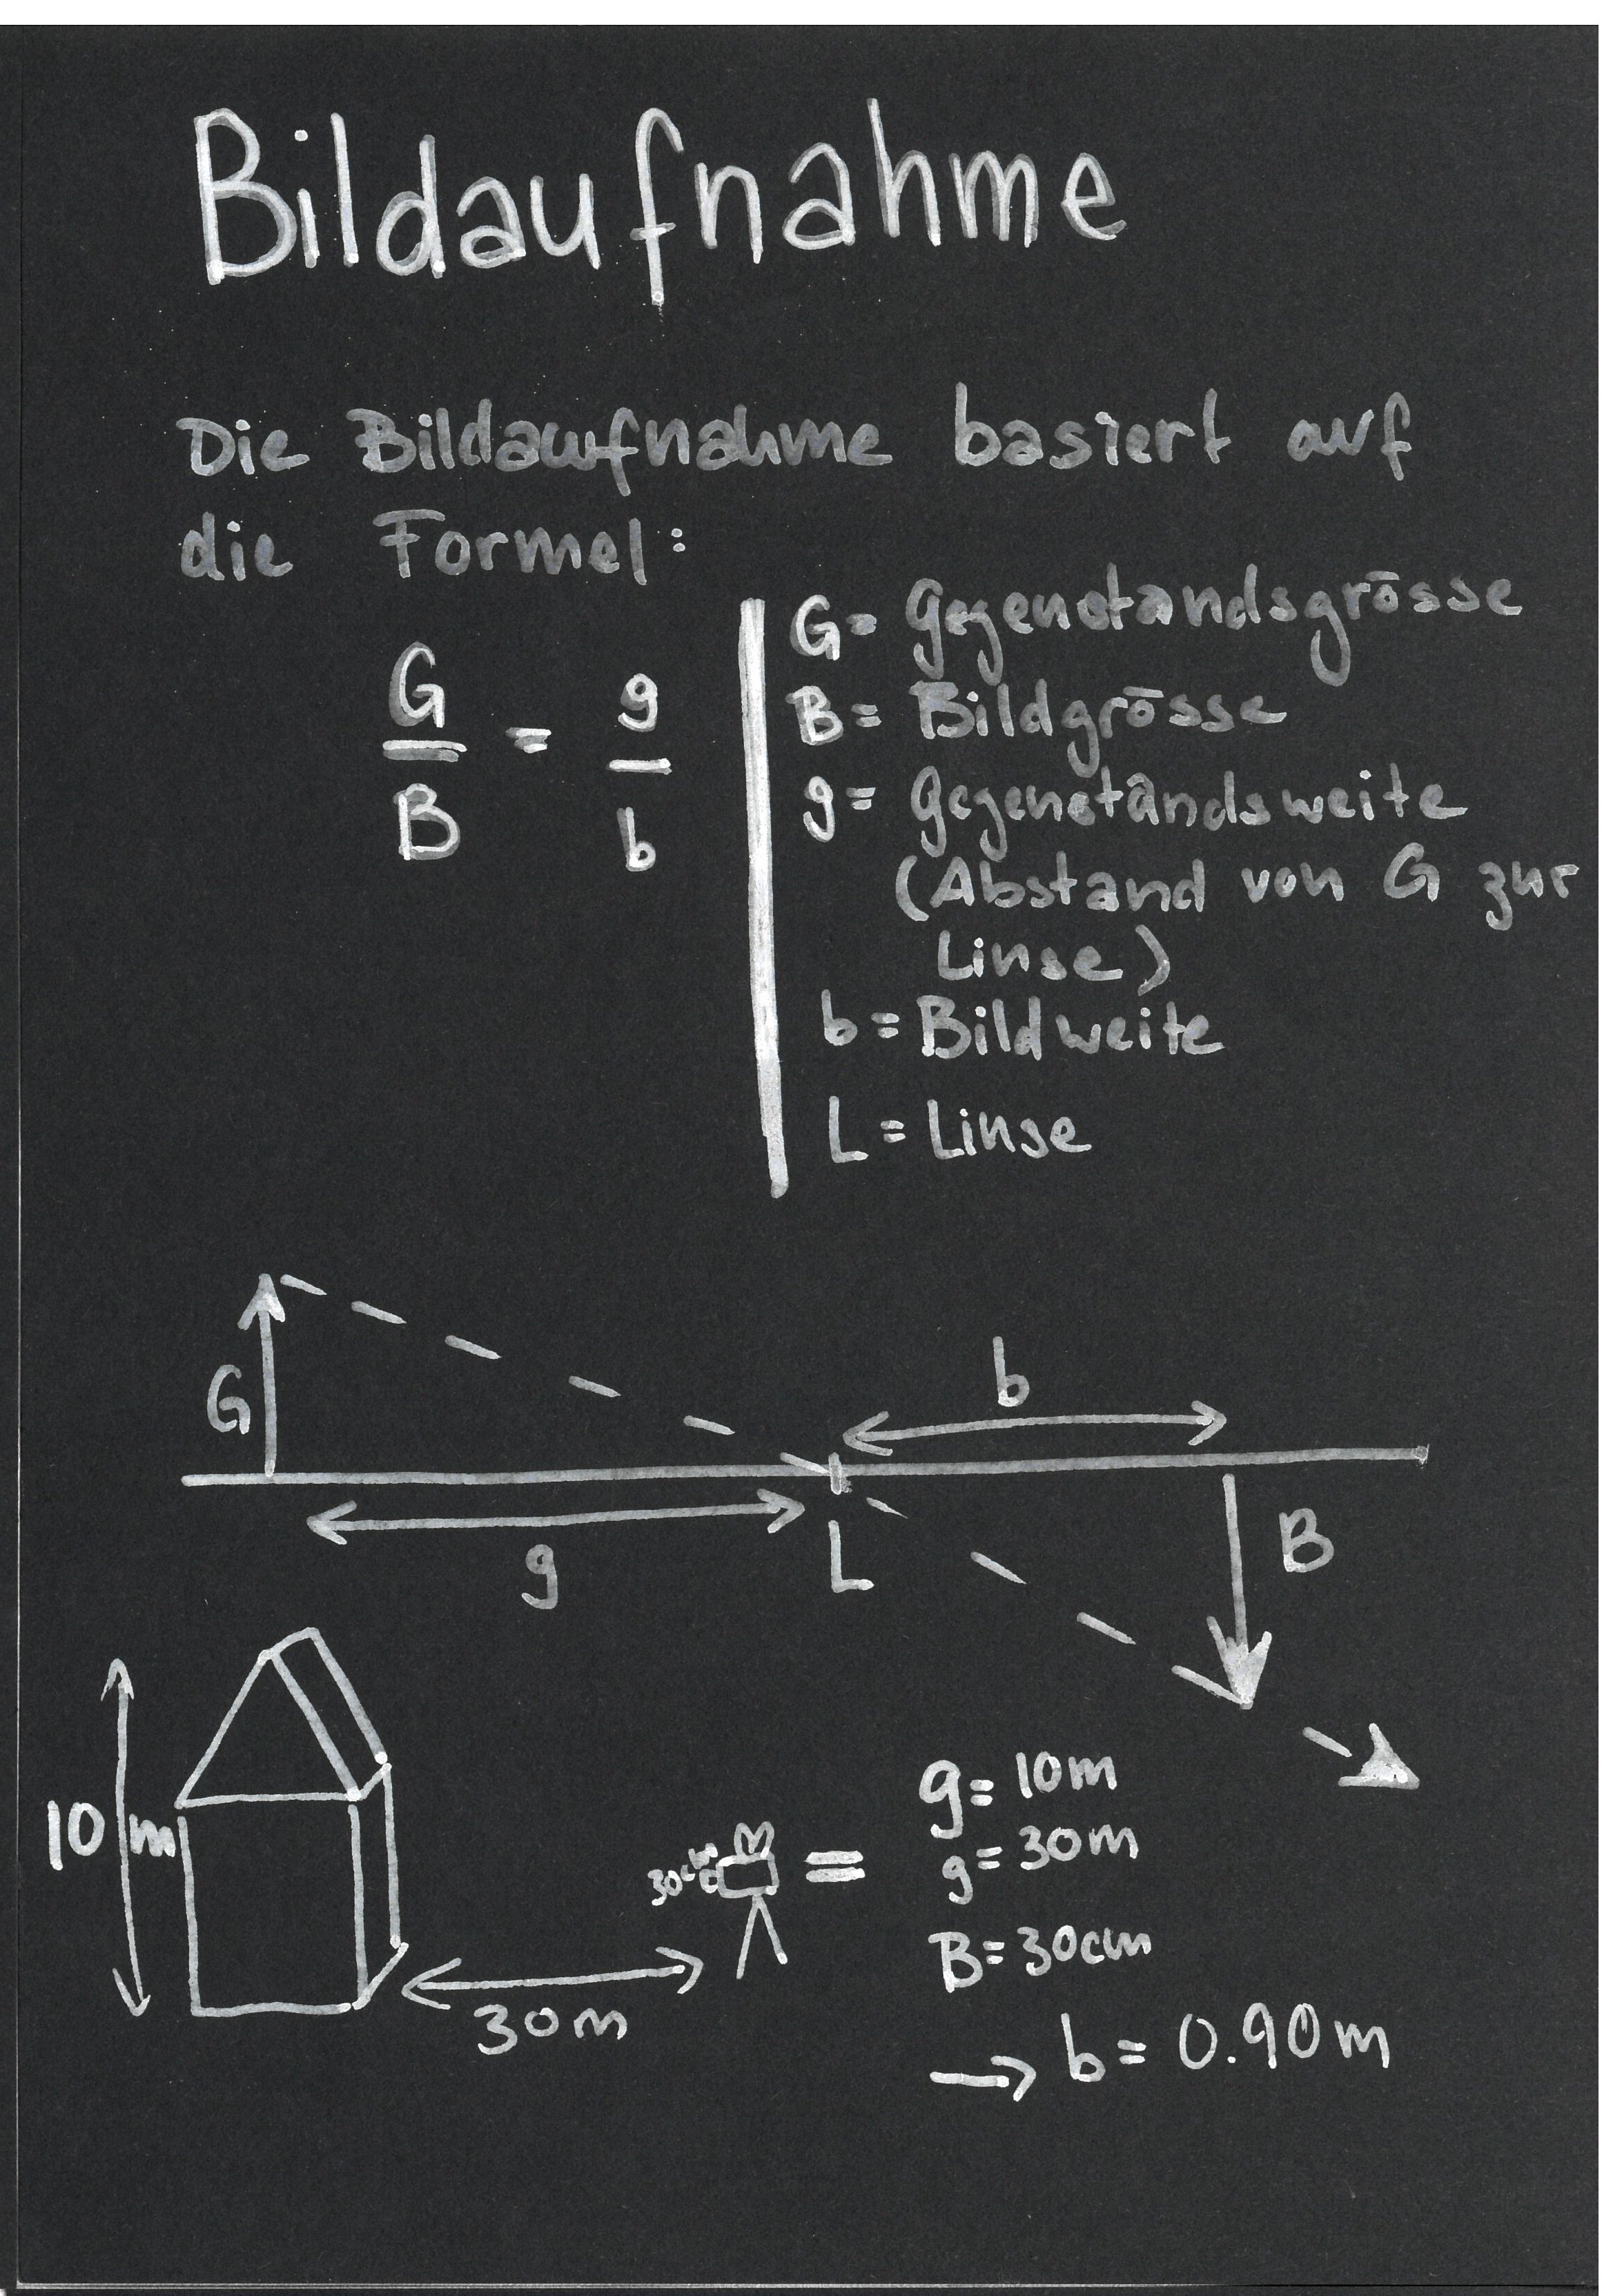 Bildaufnahme
Die Bildaufnahme basiert auf
die Formel:
G/B = g/b
G= Gegenstandsgrösse
B= Bildgrösse
g= Gegenstandsweite
(Abstand von G zur
Linse)
b= Bildweite
L= Linse
G
b
g
L
B
10 m
30cm
=
30m
g= 10m
g= 30m
B= 30cm
→ b= 0.90m